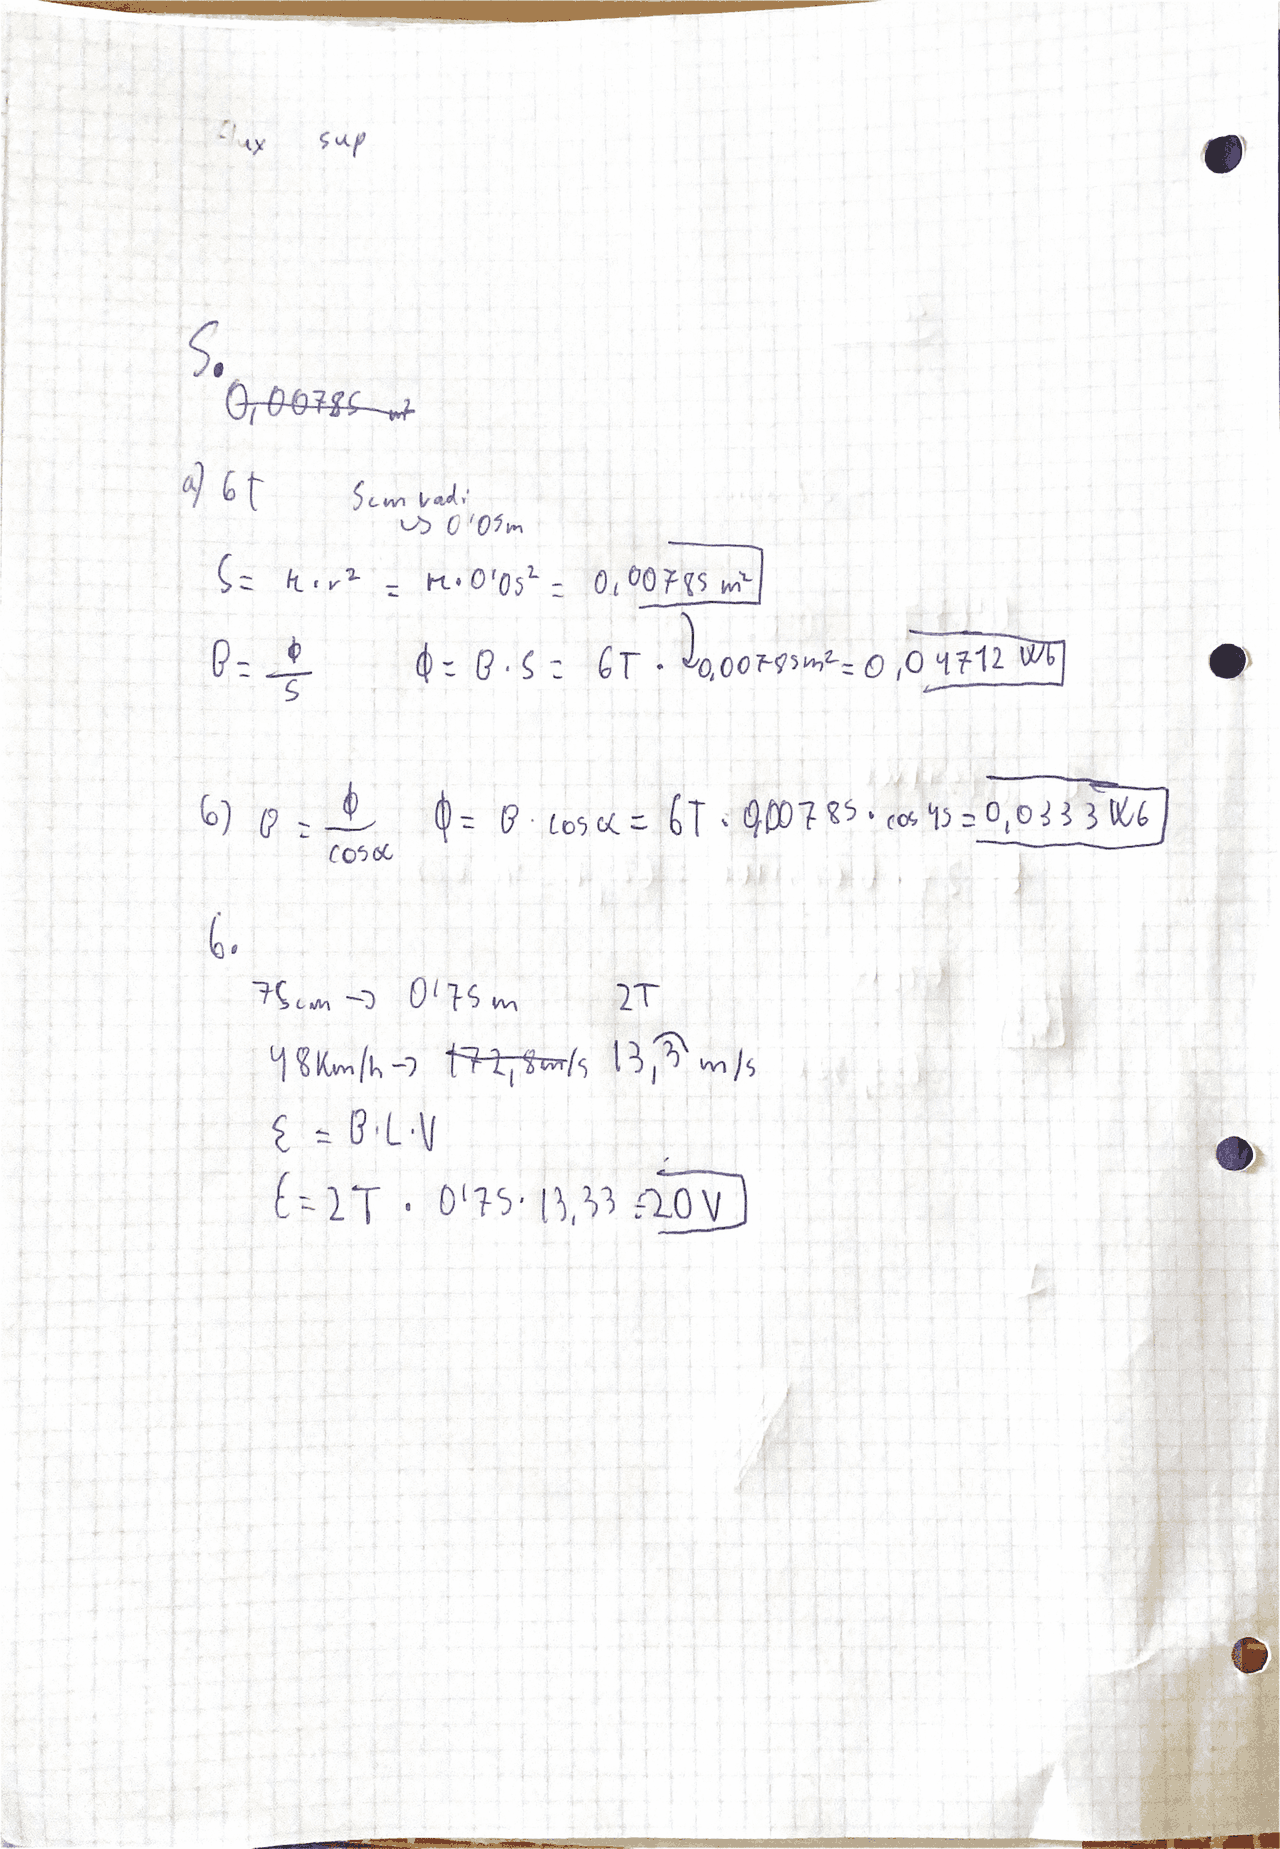 sup
5.
0,00785 m²
a) 6T 5cm radi
↳ 0'05m
S = π·r² = π·0'05² = 0,00785 m²
B = ϕ/S ϕ = B·S = 6T · 0,00785m² = 0,04712 Wb
b) B = ϕ/cosα ϕ = B·cosα = 6T · 0,00785 · cos 45 = 0,0333 Wb
6.
75cm → 0'75 m 2T
48Km/h → 172,8m/s 13,3 m/s
ε = B·L·V
ε = 2T · 0'75 · 13,33 = 20V